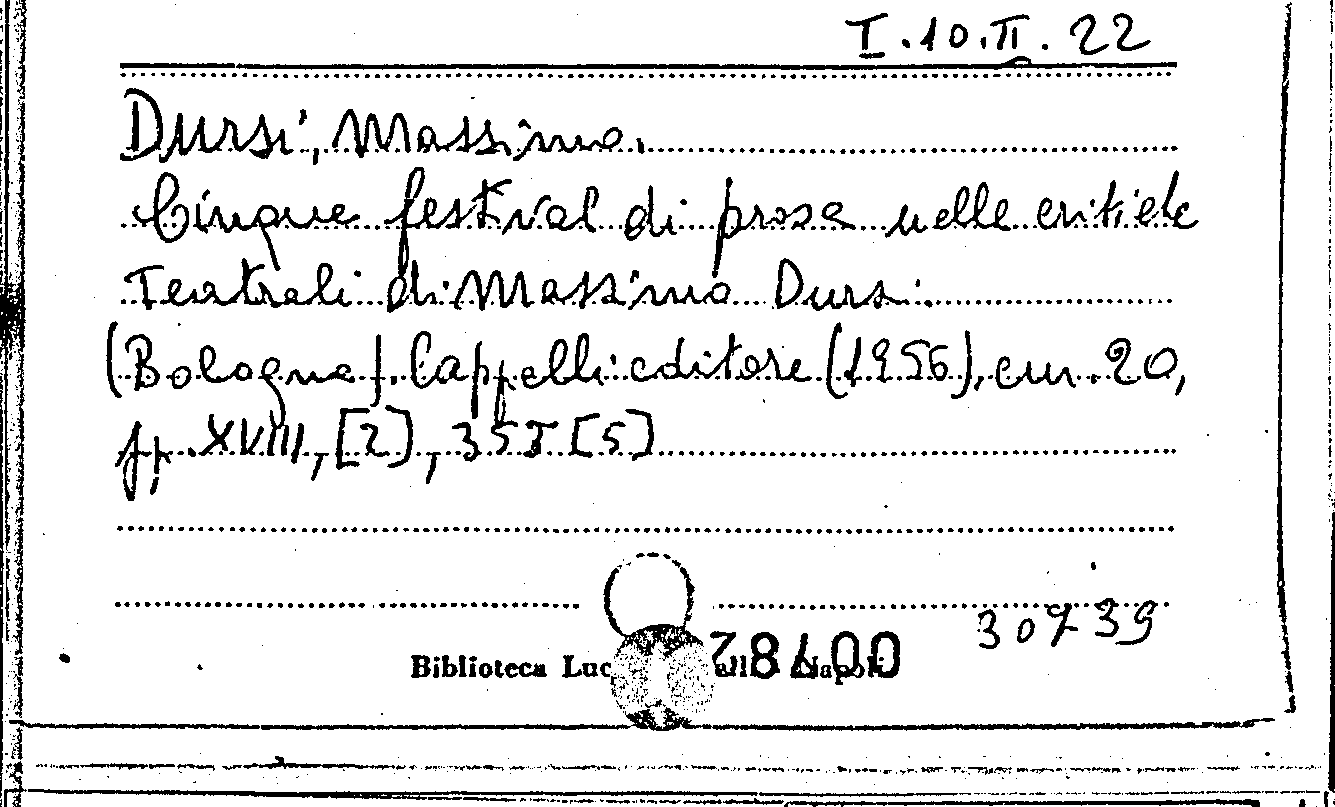 I.10.II.22
Dursi, Massimo.
Cinque festival di prosa nelle critiche
Teatrali di Massimo Dursi.
(Bologna), Cappelli editore (1956), cm. 20,
pp. XVIII, [2], 355 [5]
30739
Biblioteca Luc
Napoli